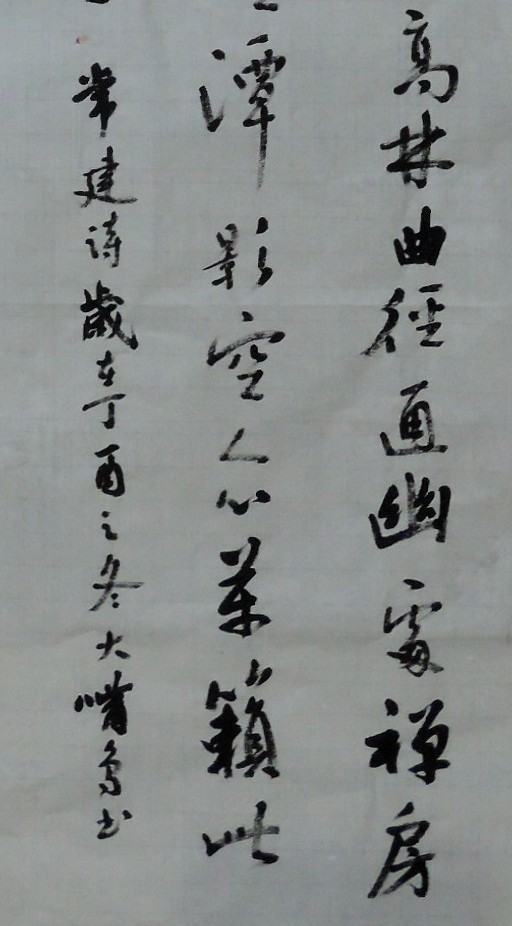 高林曲徑通幽處禪房
潭影空人心萬籟此
常建詩歲在丁酉之冬大嘴鳥书